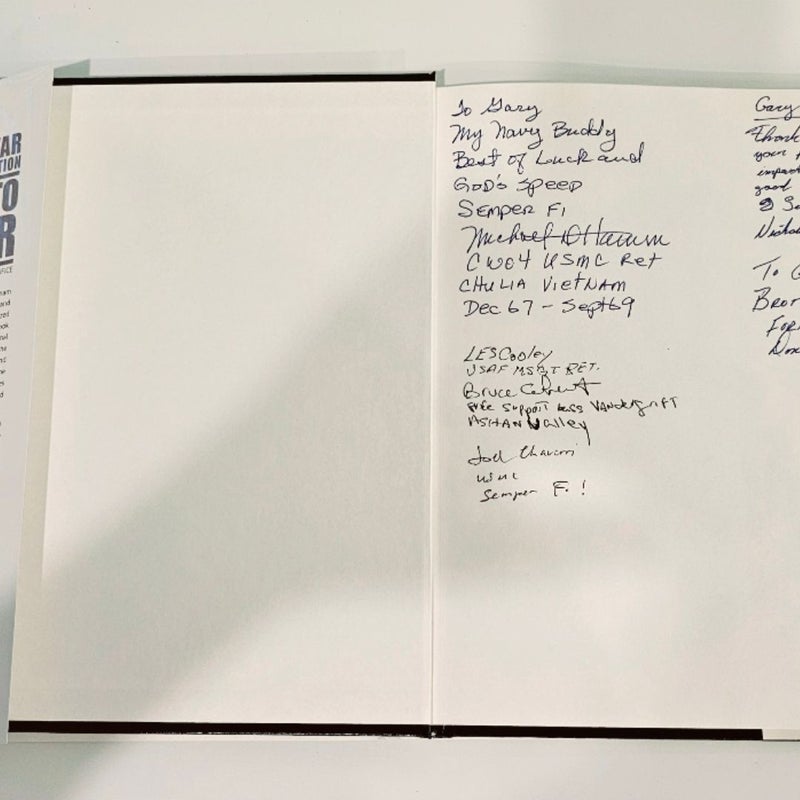 AR
TION
TO
R
FICE
To Gary
My Navy Buddy
Best of Luck and
GOD'S SPEED
SEMPER FI
Michael D Hamm
CWO4 USMC Ret
CHU LIA VIETNAM
Dec 67 - Sept 69
LES Cooley
USAF MSGT RET.
Bruce
Fire Support Bass VANDEgrifT
ASHAN Valley
Joel
USMC
Semper F. !
Gary
Thank
your
impact
good
To G
Bro
For